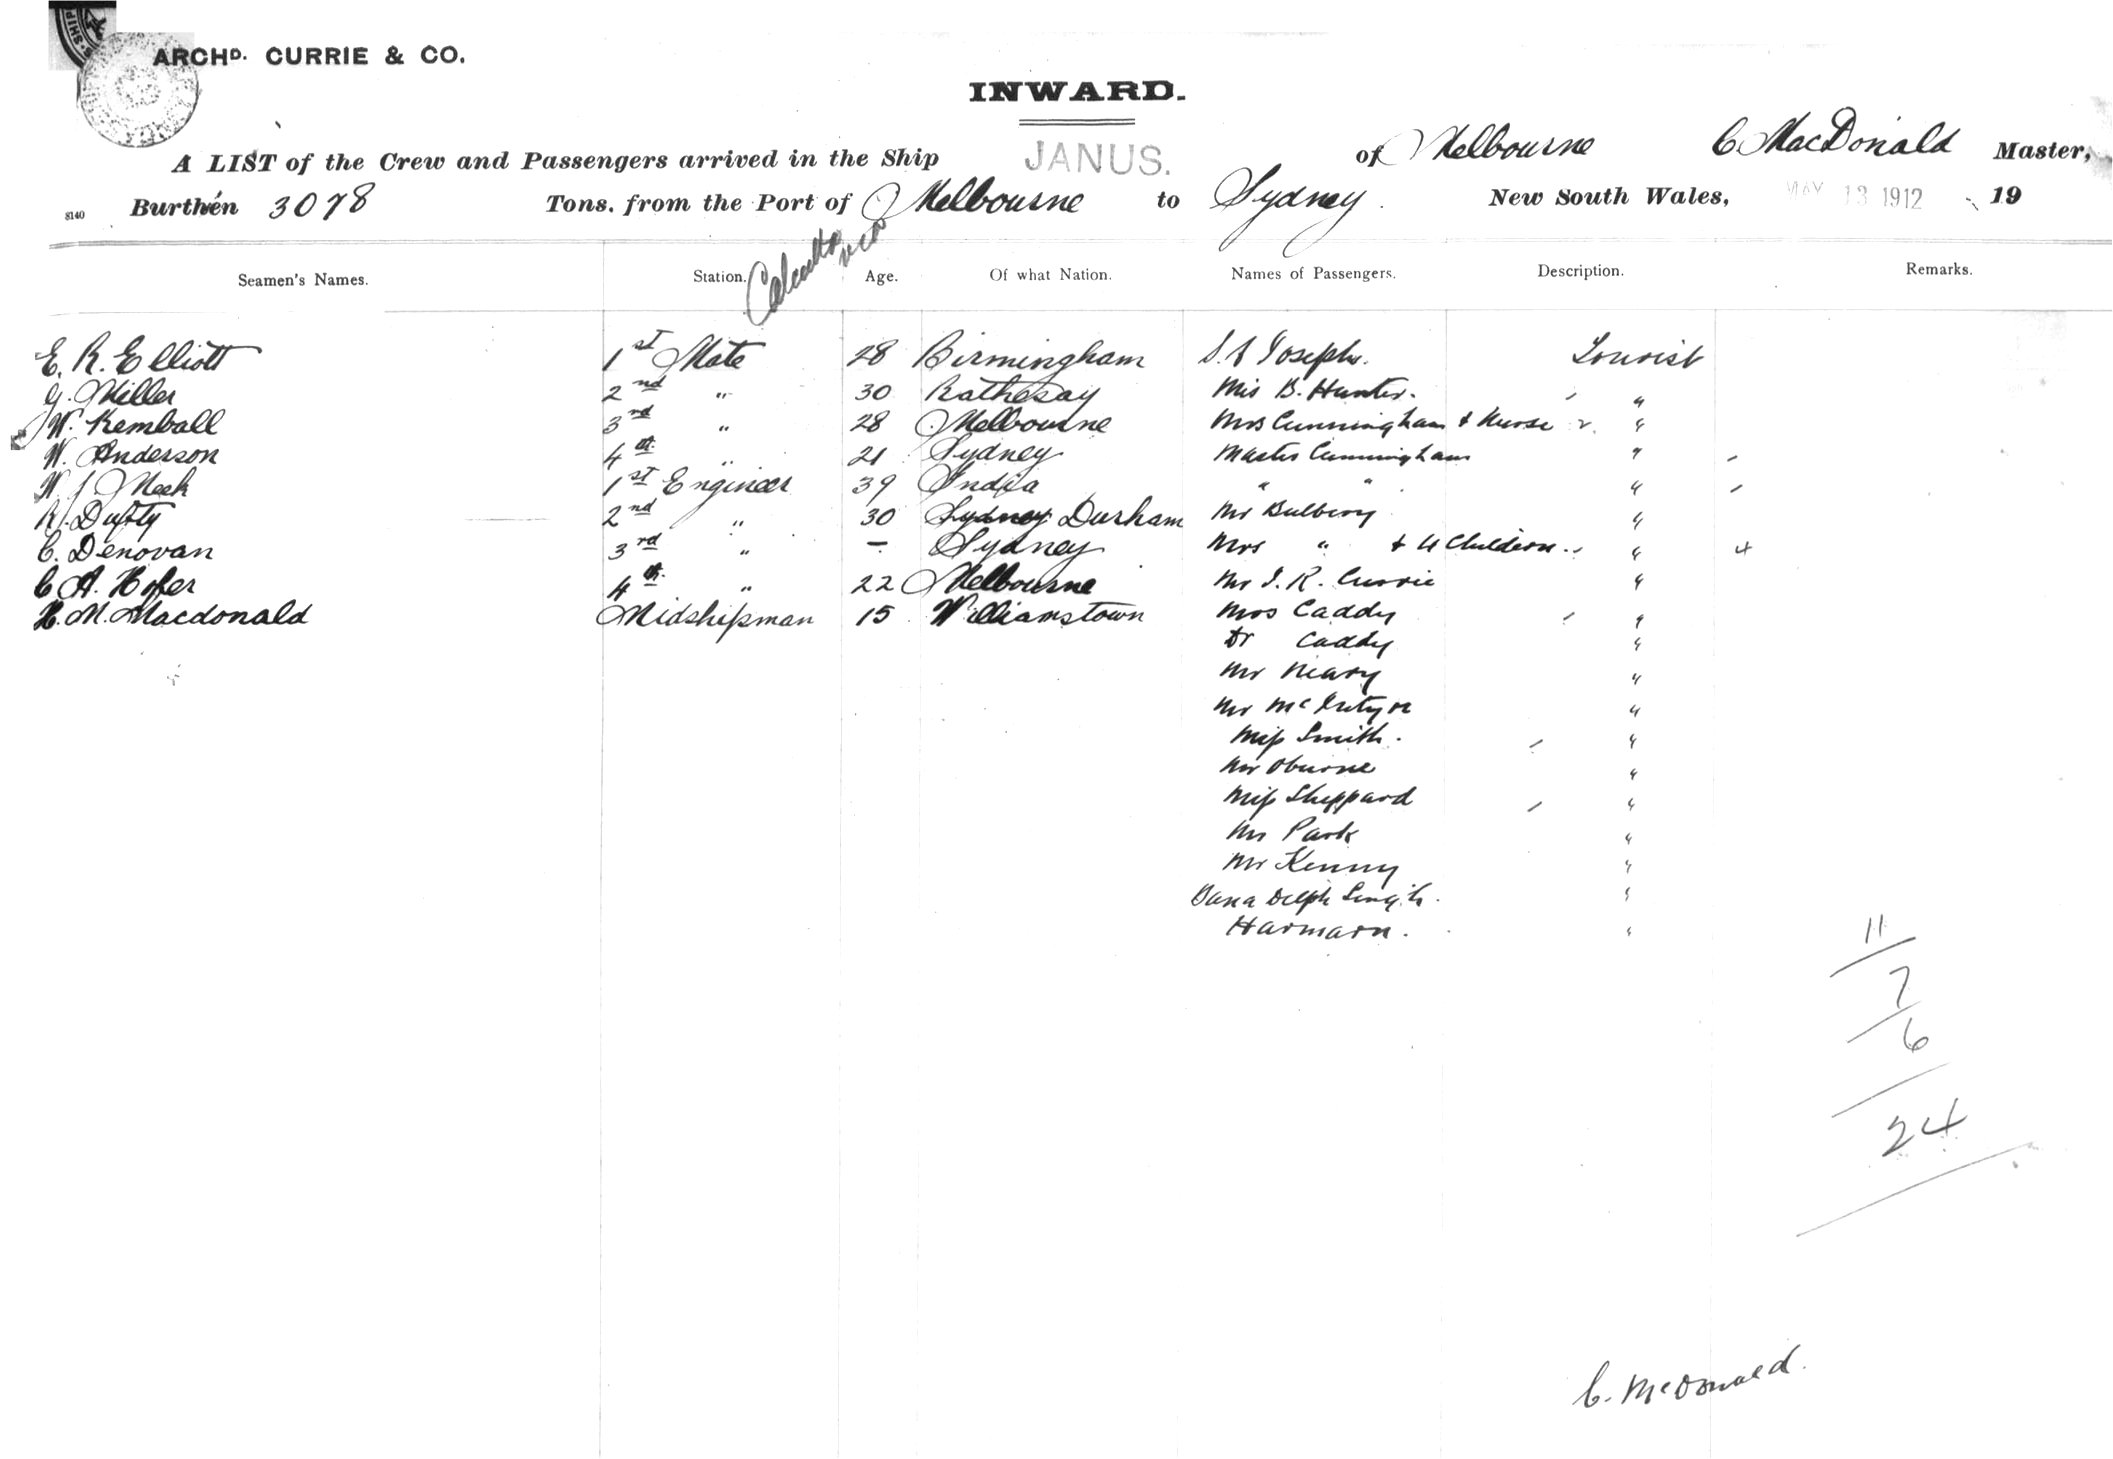 ARCHD. CURRIE & CO.
INWARD.
A LIST of the Crew and Passengers arrived in the Ship JANUS. of Melbourne C MacDonald Master,
8140 Burthen 3078 Tons. from the Port of Melbourne to Sydney. New South Wales, MAY 13 1912 19
Calcutta via
Seamen's Names. Station. Age. Of what Nation. Names of Passengers. Description. Remarks.
E. R. Elliott 1st Mate 28 Birmingham Joseph. Tourist
G. Miller 2nd " 30 Rothesay B. Hunter. "
W. Kemball 3rd " 28 Melbourne Mrs Cunningham & Nurse 2. "
W. Anderson 4th " 21 Sydney Master Cunningham "
W J Meek 1st Engineer 39 India " " "
R. Dufty 2nd " 30 Sydney Durham Mr Bulbery "
C. Denovan 3rd " - Sydney Mrs " & 4 Children " 4
C A. Hofer 4th " 22 Melbourne Mr J. R. Currie "
H. M. Macdonald Midshipman 15 Williamstown Mrs Caddy "
Dr Caddy "
Mr Neary "
Mr McIntyre "
Miss Smith. "
Mr Oburne "
Miss Sheppard "
Mr Park "
Mr Kenny "
Singh. "
Harmarn. "
11
7
6
24
C. McDonald.